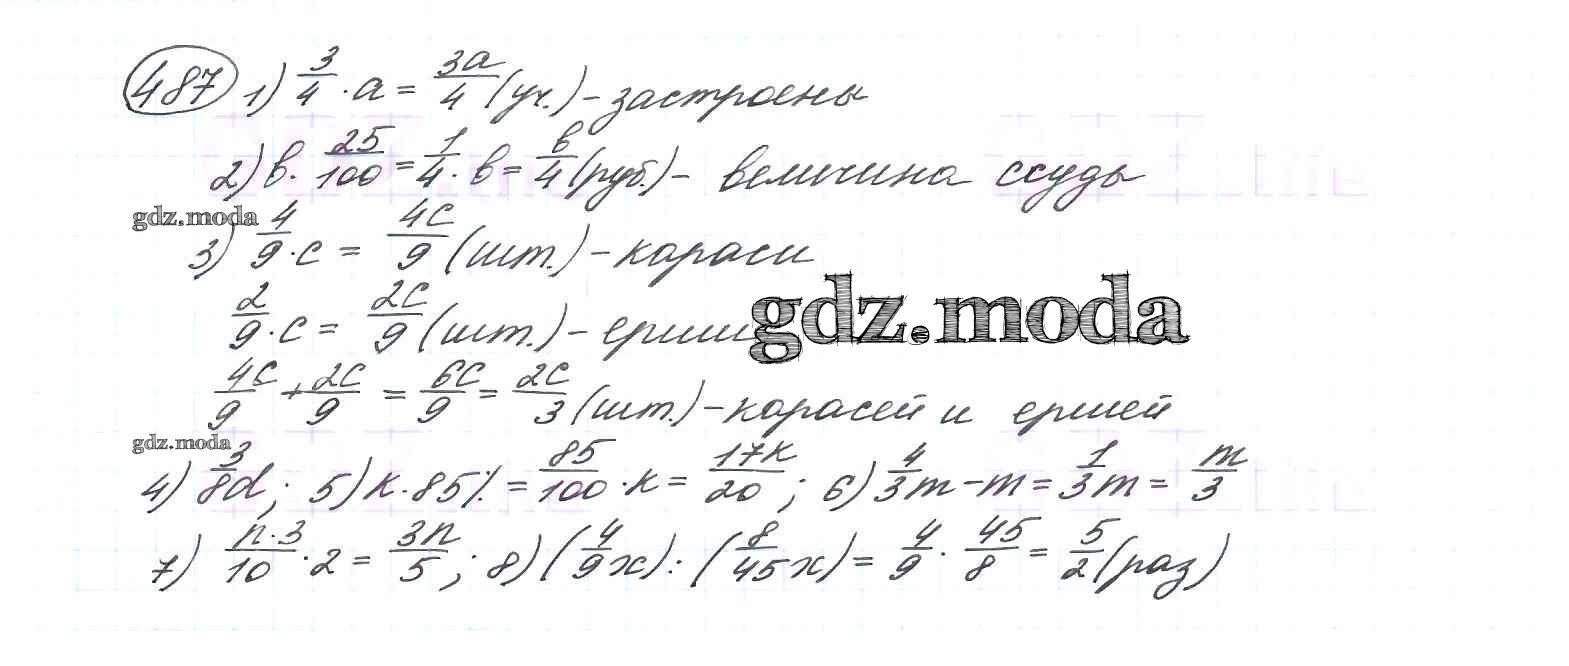 487 1) 3/4 · a = 3a/4 (уч.) - застроены
2) в · 25/100 = 1/4 · в = в/4 (руб.) - величина ссуды
gdz.moda
3) 4/9 · c = 4c/9 (шт.) - караси
2/9 · c = 2c/9 (шт.) - ерши
gdz.moda
4c/9 + 2c/9 = 6c/9 = 2c/3 (шт.) - карасей и ершей
gdz.moda
4) 3/8 d; 5) к · 85% = 85/100 · к = 17к/20; 6) 4/3 m - m = 1/3 m = m/3
7) n·3/10 · 2 = 3n/5; 8) (4/9 x) : (8/45 x) = 4/9 · 45/8 = 5/2 (раз)